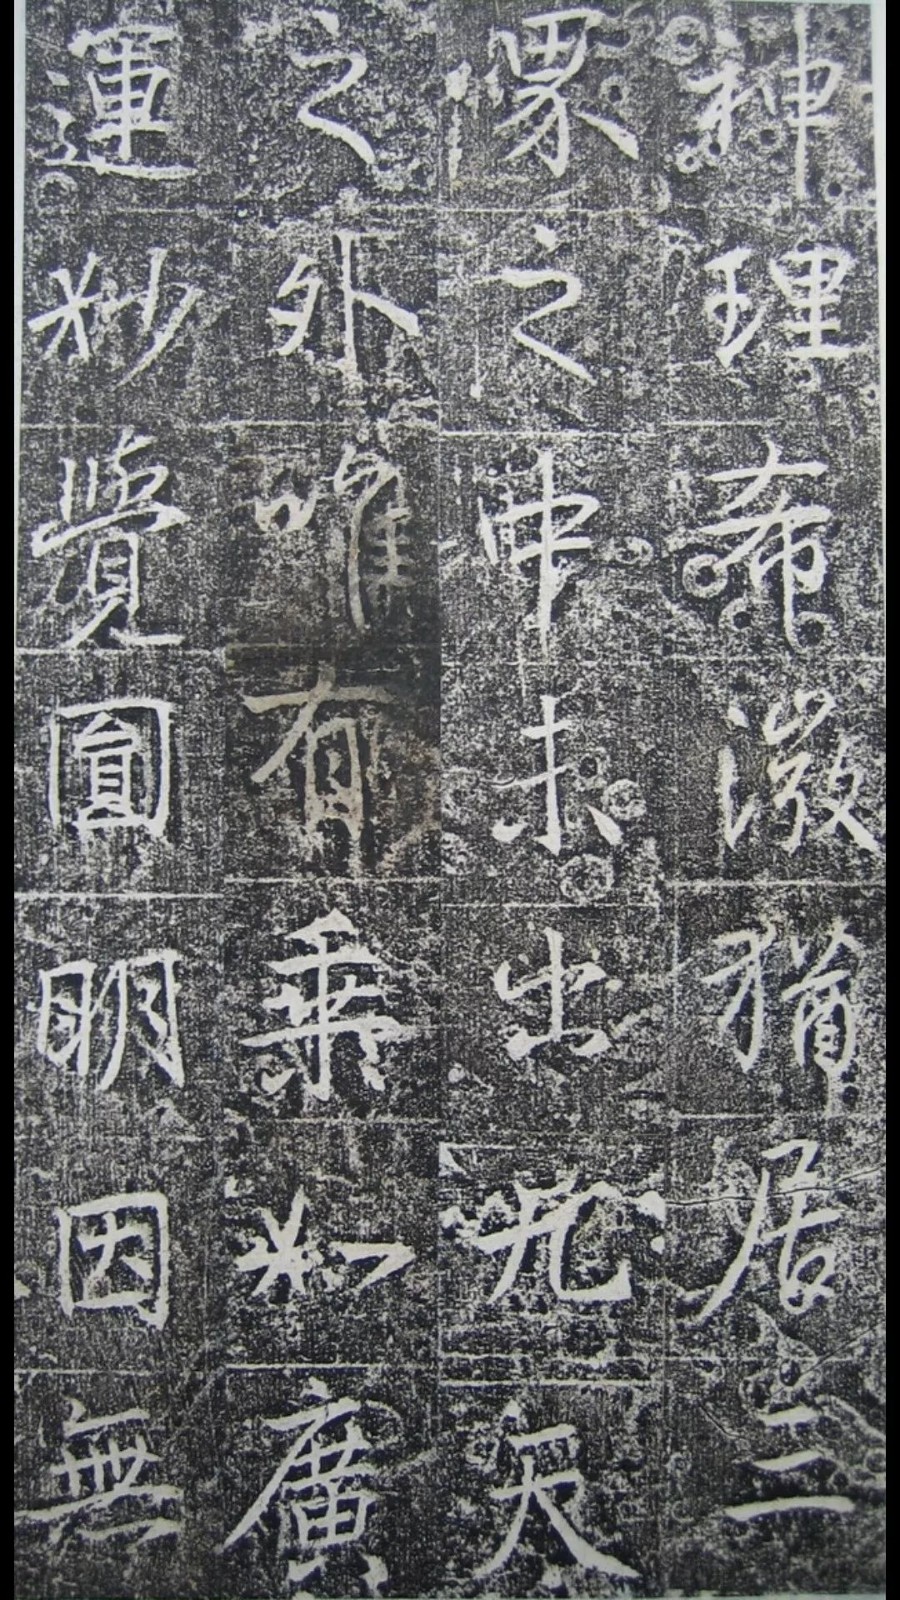 神理希微猶居二
象之中未出九天
之外唯有乘如廣
運妙覺圓明因無